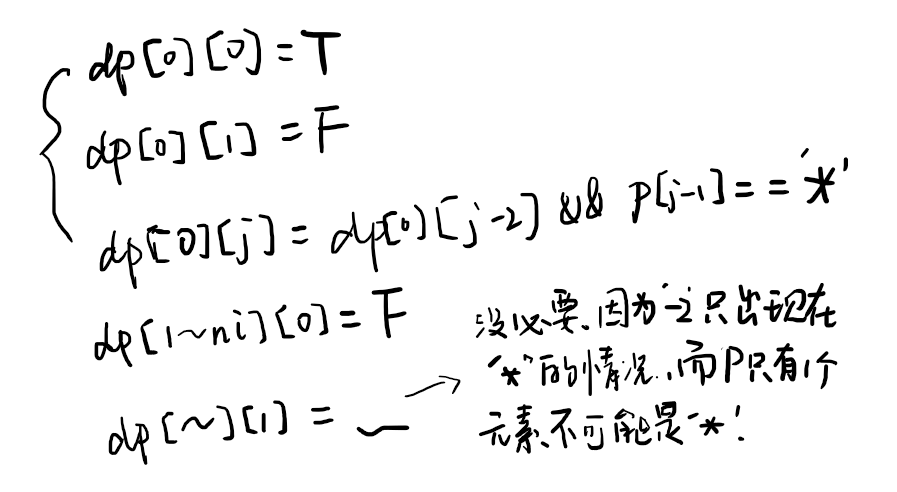 dp[0][0]=T
dp[0][1]=F
dp[0][j]=dp[0][j-2] && p[j-1]=='*'
dp[1~ni][0]=F
dp[~][1]=
没必要.因为-2只出现在
'*'的情况.,而P只有1个
元素.不可能是'*'.